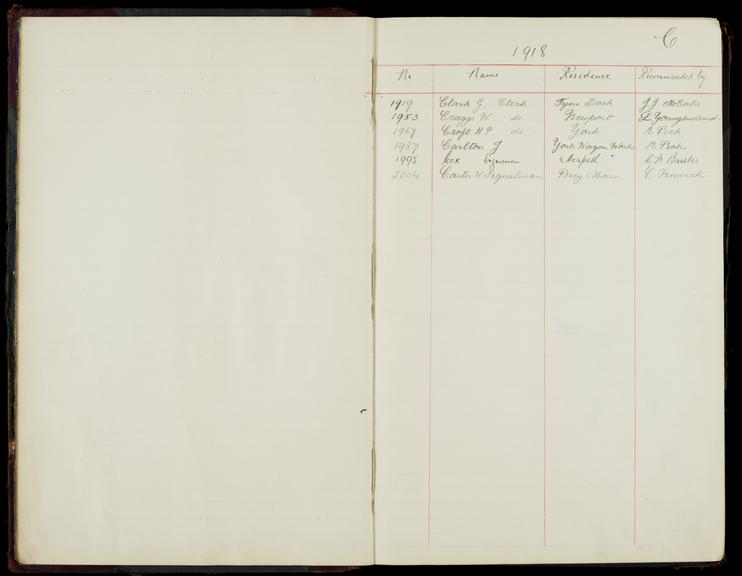 C
1918
No Name Residence Recommended by
1919 Clark G. Clerk Tyne Dock J J McCabe
1953 Craggs W do Newport L Younghusband
1967 Croft H P do York R Peck
1987 Carlton J York Wagon Works R Peck
1995 Cox Engineman Morpeth C N
2004 Carter W Signalman Percy Main C Fenwick